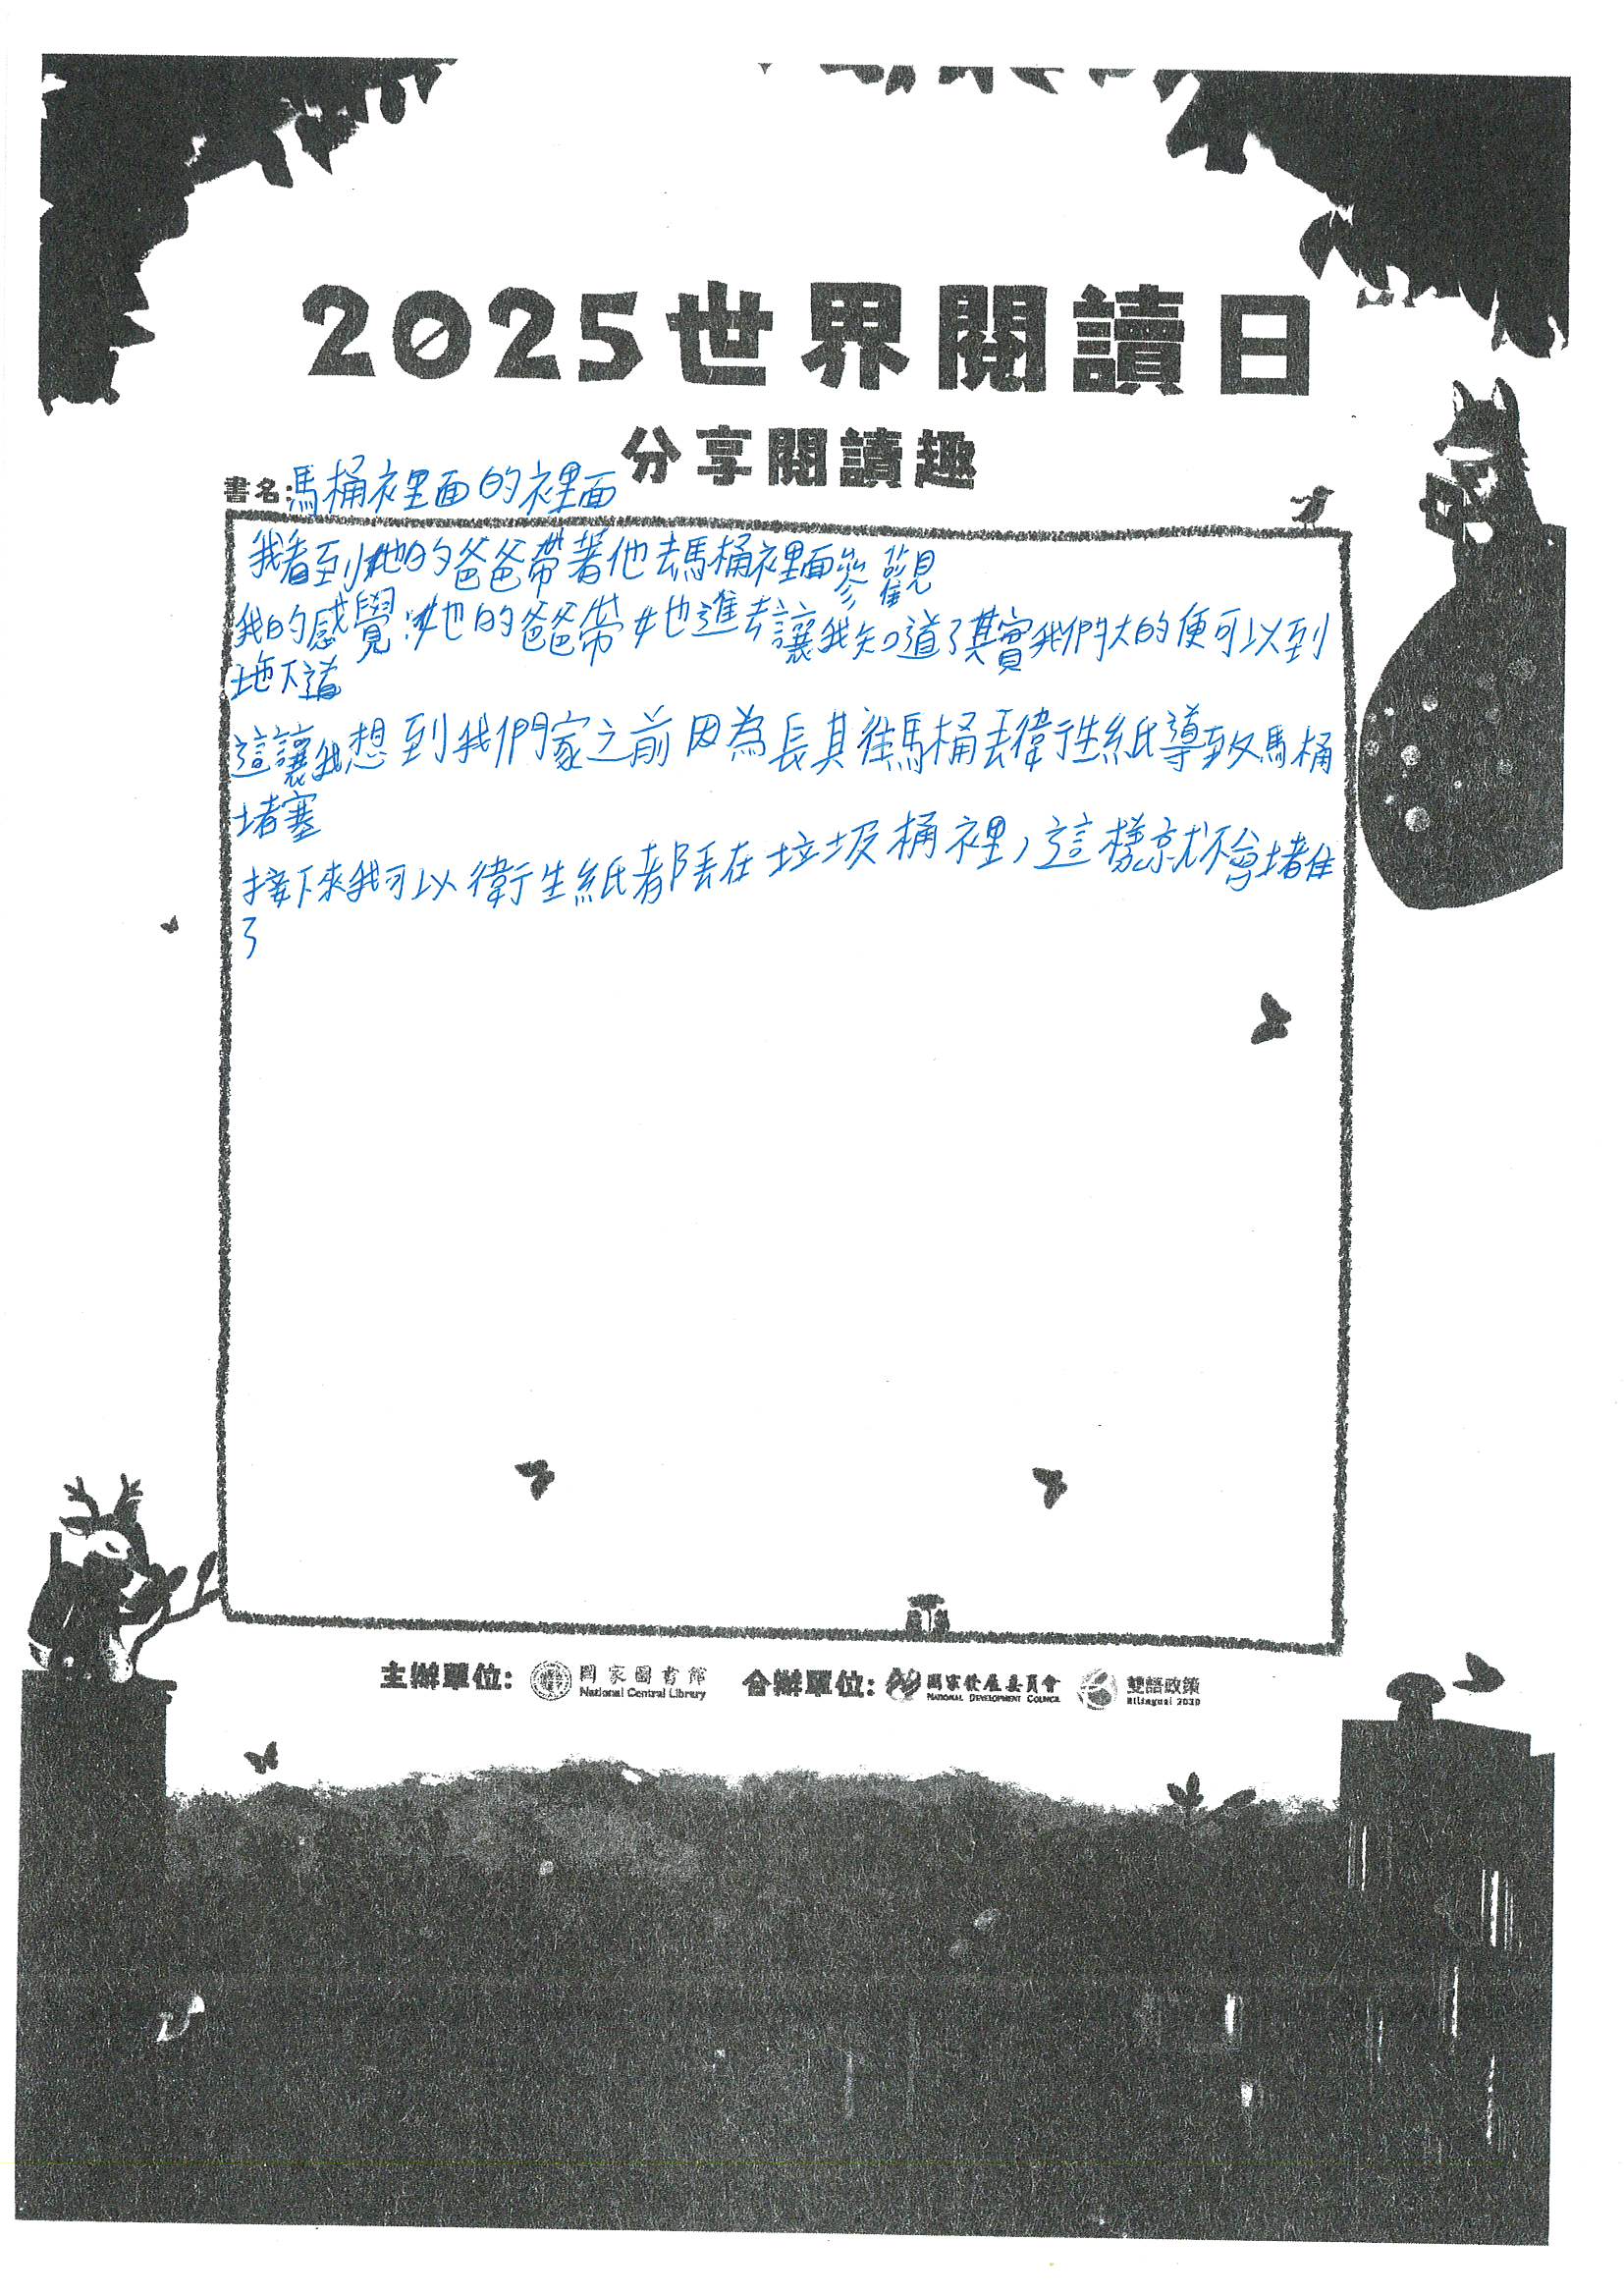 2025世界閱讀日
分享閱讀趣
書名:馬桶裡面的裡面
我看到她的爸爸帶著他去馬桶裡面參觀
我的感覺:她的爸爸帶她進去讓我知道了其實我們大的便可以到
地下道
這讓我想到我們家之前因為長其往馬桶丟衛生紙導致馬桶
堵塞
接下來我可以衛生紙都丟在垃圾桶裡,這樣就不會堵住
了
主辦單位: 國家圖書館 合辦單位: 國家發展委員會 雙語政策
National Central Library NATIONAL DEVELOPMENT COUNCIL Bilingual 2030